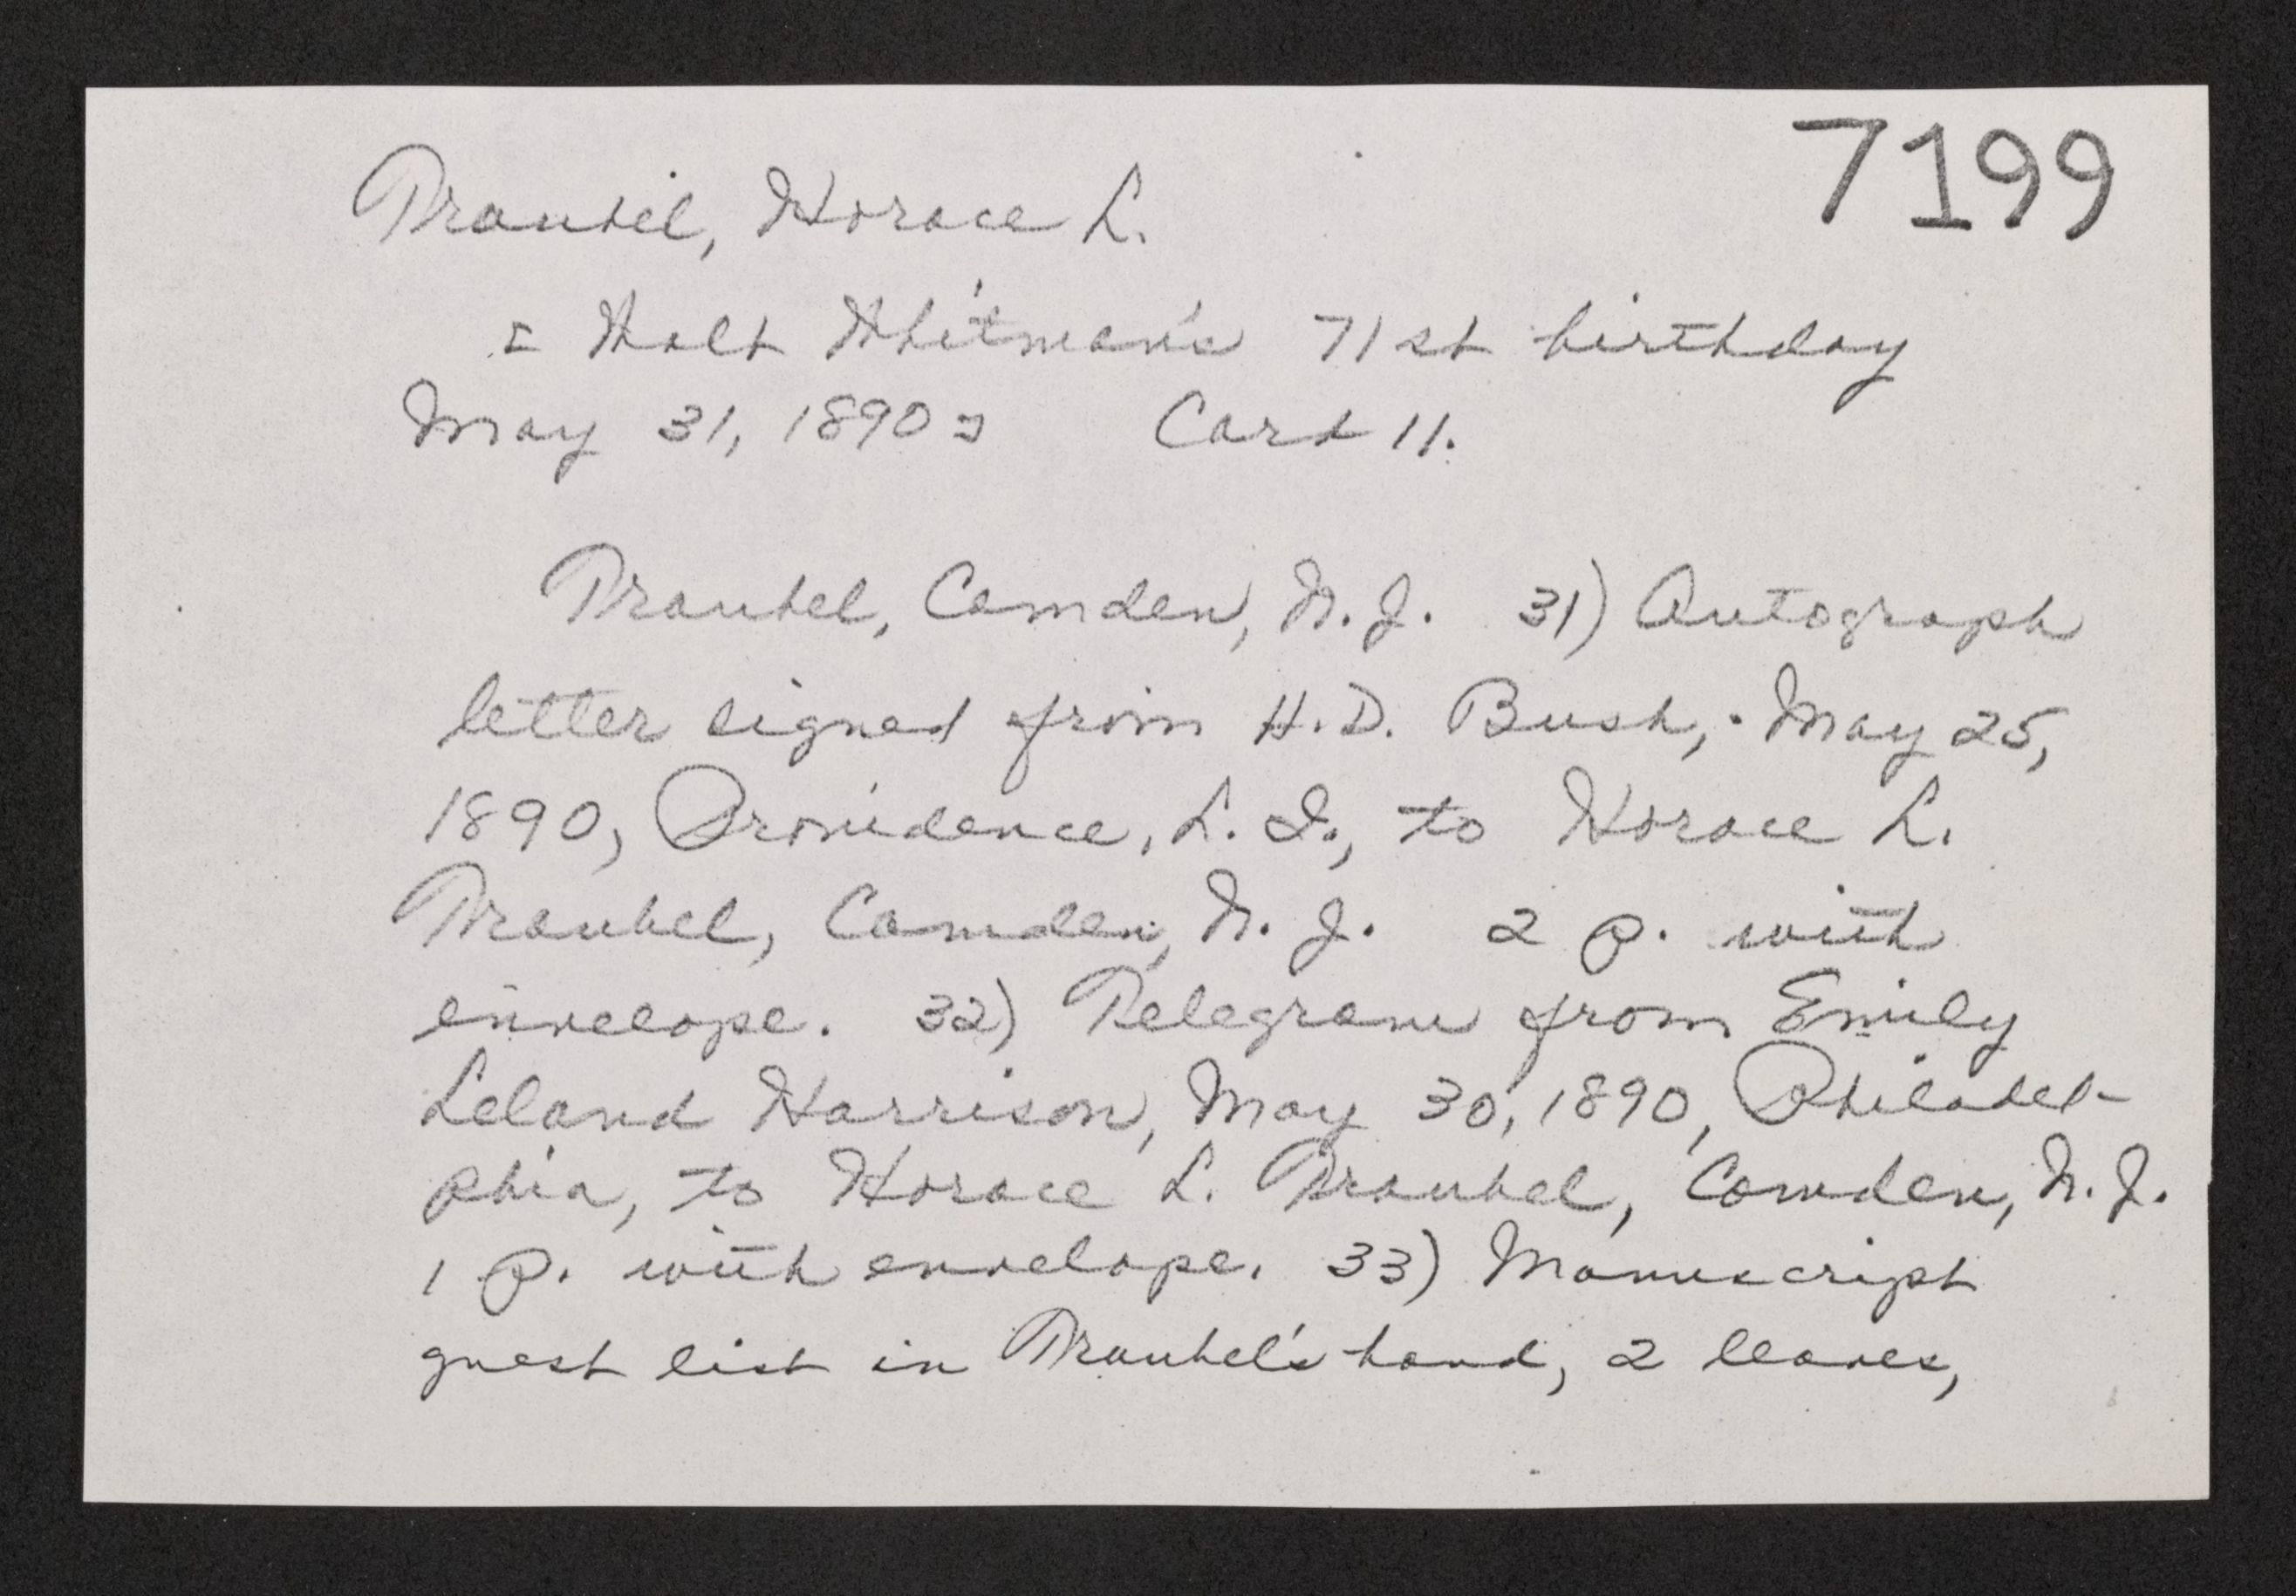 7199
Traubel, Horace L.
[Walt Whitman's 71st birthday
May 31, 1890] Card 11.
Traubel, Camden, N.J. 31) Autograph
letter signed from H.D. Bush, May 25,
1890, Providence, L.I., to Horace L.
Traubel, Camden, N.J. 2 p. with
envelope. 32) Telegram from Emily
Leland Harrison, May 30, 1890, Philadel-
phia, to Horace L. Traubel, Camden, N.J.
1 p. with envelope. 33) Manuscript
guest list in Traubel's hand, 2 leaves,